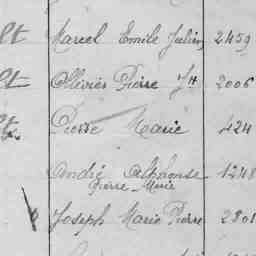 lt Marcel Emile Julien 2459
lt Ollivier Pierre Jh 2006
lt Pierre Marie 424
André Alphonse 1248
Pierre Marie
Joseph Marie Pierre 2801